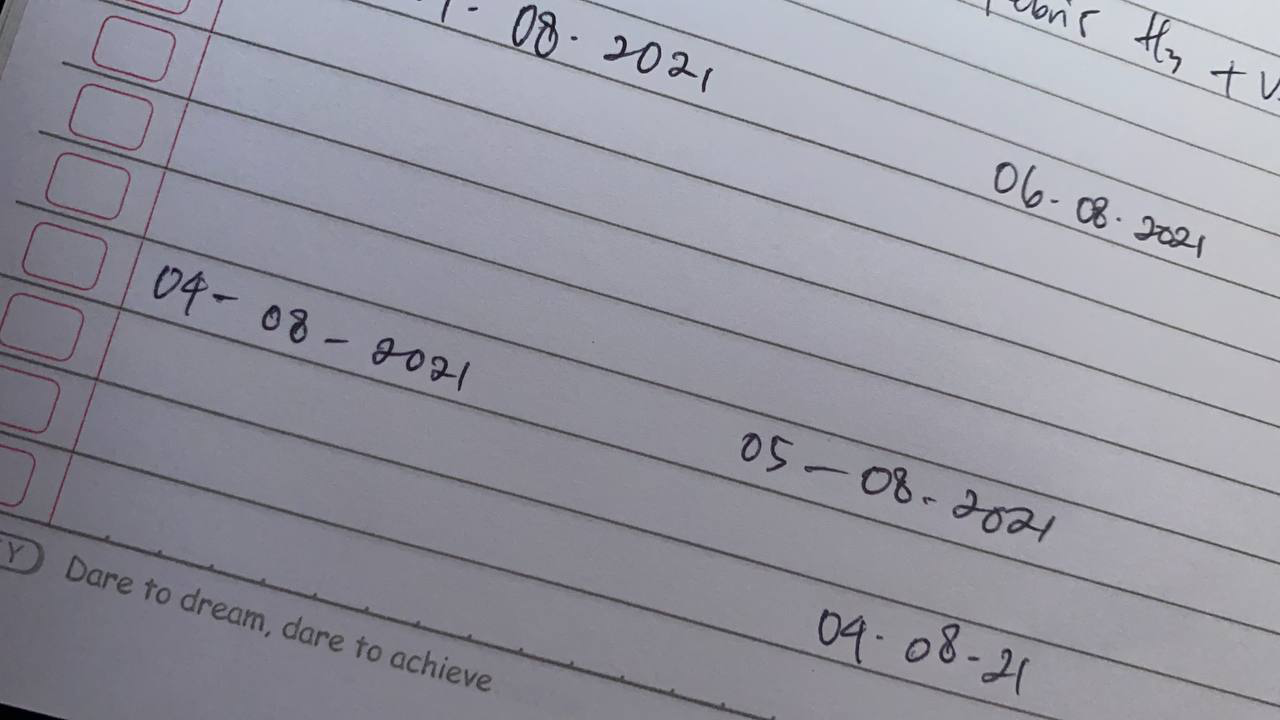 08. 2021
H3 +
06-08. 2021
04- 08 - 2021
05 - 08. 2021
04. 08-21
Y
Dare to dream, dare to achieve